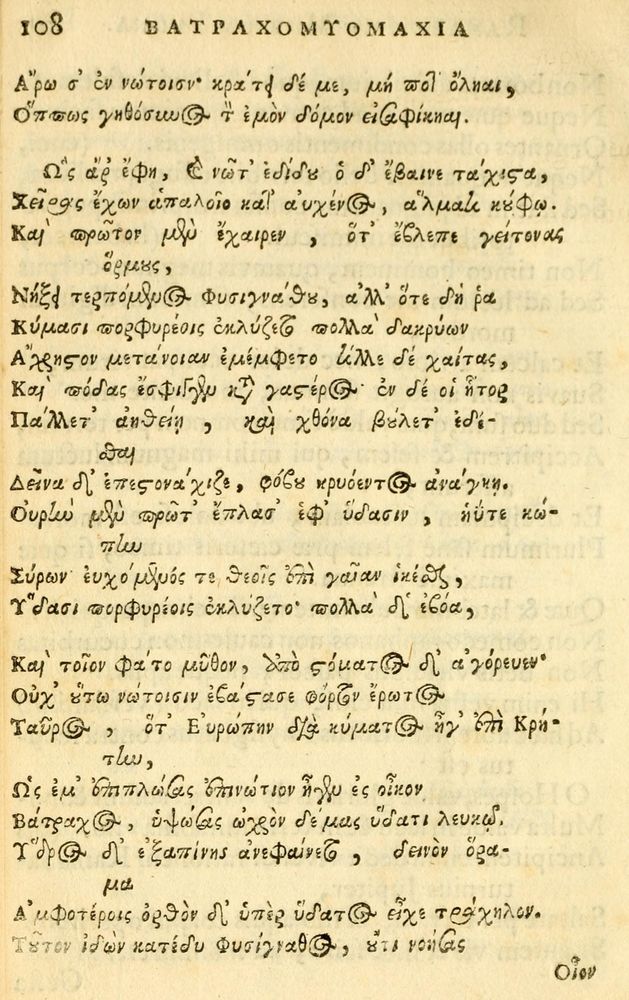 108 ΒΑΤΡΑΧΟΜΥΟΜΑΧΙΑ
Αἴρω σ' ἐν νώτοισν· κράτει δέ με, μή ποτ' ὄληαι,
Ὅππως γηθόσυνος τ' ἐμὸν δόμον εἰσαφίκηαι.
Ὣς ἄρ' ἔφη, καὶ νῶτ' ἐδίδου ὁ δ' ἔβαινε τάχιστα,
Χεῖρας ἔχων ἁπαλοῖο κατ' αὐχένος, ἅλματι κούφῳ.
Καὶ πρῶτον μὲν ἔχαιρεν, ὅτ' ἔβλεπε γείτονας
ὅρμους,
Νήξει τερπόμενος Φυσιγνάθου, ἀλλ' ὅτε δή ῥα
Κύμασι πορφυρέοις ἐκλύζετο πολλὰ δακρύων
Ἄχρηστον μετάνοιαν ἐμέμφετο τίλλε δέ χαίτας,
Καὶ πόδας ἔσφιγγεν κατὰ γαστέρος· ἐν δέ οἱ ἦτορ
Πάλλετ' ἀηθείῃ, καὶ χθόνα βούλετ' ἐδέ-
σθαι
Δεῖνα δ' ἐπεστονάχιζε, φόβου κρυόεντος ἀνάγκῃ.
Οὐρὴν μὲν πρῶτ' ἔπλασ' ἐφ' ὕδασιν, ἠΰτε κώ-
πην
Σύρων· εὐχόμενός τε θεοῖς ἐπὶ γαῖαν ἱκέσθαι,
Ὕδασι πορφυρέοις ἐκλύζετο· πολλὰ δ' ἐβόα,
Καὶ τοῖον φάτο μῦθον, ἀπὸ στόματος δ' ἀγόρευεν·
Οὐχ' οὕτω νώτοισιν ἐβάστασε φόρτον ἔρωτος
Ταῦρος, ὅτ' Εὐρώπην διὰ κύματος ἦγ' ἐπὶ Κρή-
την,
Ὡς ἐμ' ἐπιπλώσας ἐπινώτιον ἦγεν ἐς οἶκον
Βάτραχος, ὑψώσας ὠχρὸν δέμας ὕδατι λευκῷ.
Ὕδρος δ' ἐξαπίνης ἀνεφαίνετο, δεινὸν ὅρα-
μα
Ἀμφοτέροις ὀρθὸν δ' ὑπὲρ ὕδατος εἶχε τράχηλον.
Τοῦτον ἰδὼν κατέδυ Φυσίγναθος, οὔτι νοήσας
Οἷον